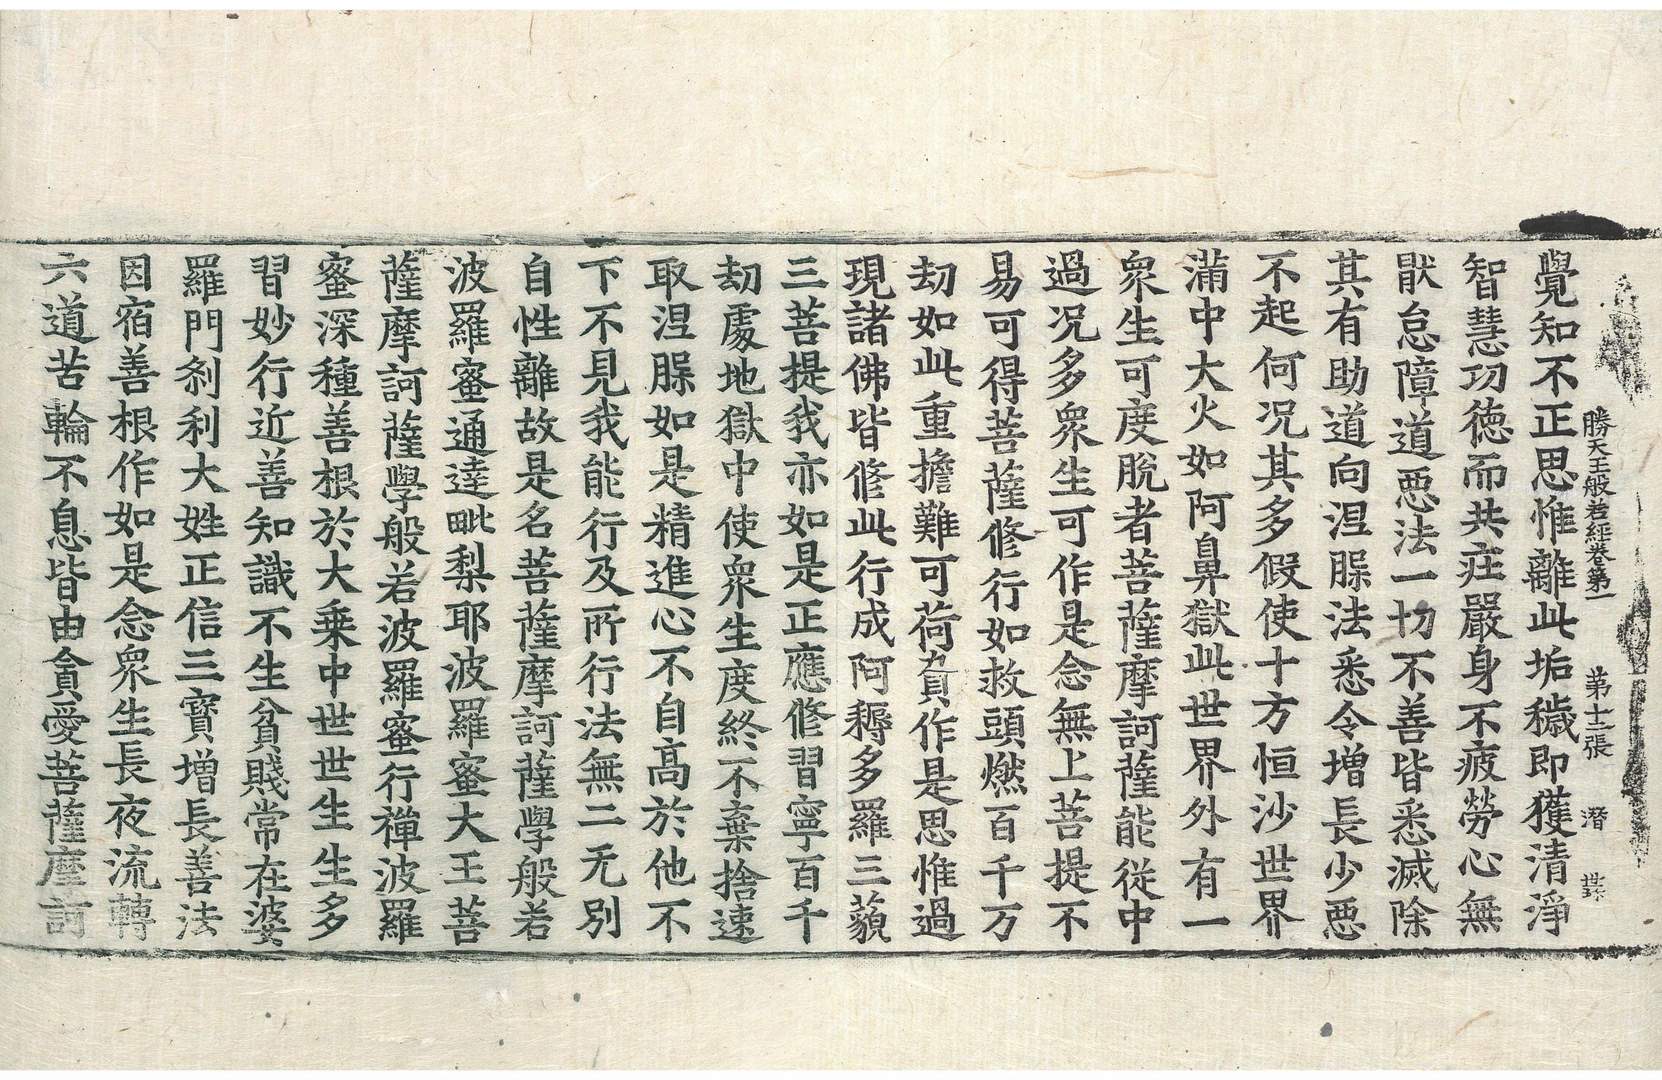 勝天王般若經卷第一　第十二張　潛
覺知不正思惟離此垢穢即獲清淨
智慧功德而共莊嚴身不疲勞心無
猒怠障道惡法一切不善皆悉滅除
其有助道向涅脲法悉令增長少惡
不起何况其多假使十方恒沙世界
滿中大火如阿鼻獄此世界外有一
衆生可度脫者菩薩摩訶薩能從中
過况多衆生可作是念無上菩提不
易可得菩薩修行如救頭燃百千万
劫如此重擔難可荷負作是思惟過
現諸佛皆修此行成阿耨多羅三藐
三菩提我亦如是正應修習寧百千
劫處地獄中使衆生度終不棄捨速
取涅脲如是精進心不自高於他不
下不見我能行及所行法無二无別
自性離故是名菩薩摩訶薩學般若
波羅蜜通達毗梨耶波羅蜜大王菩
薩摩訶薩學般若波羅蜜行禪波羅
蜜深種善根於大乗中世世生生多
習妙行近善知識不生貧賤常在婆
羅門刹利大姓正信三寶增長善法
因宿善根作如是念衆生長夜流轉
六道苦輪不息皆由貪愛菩薩摩訶